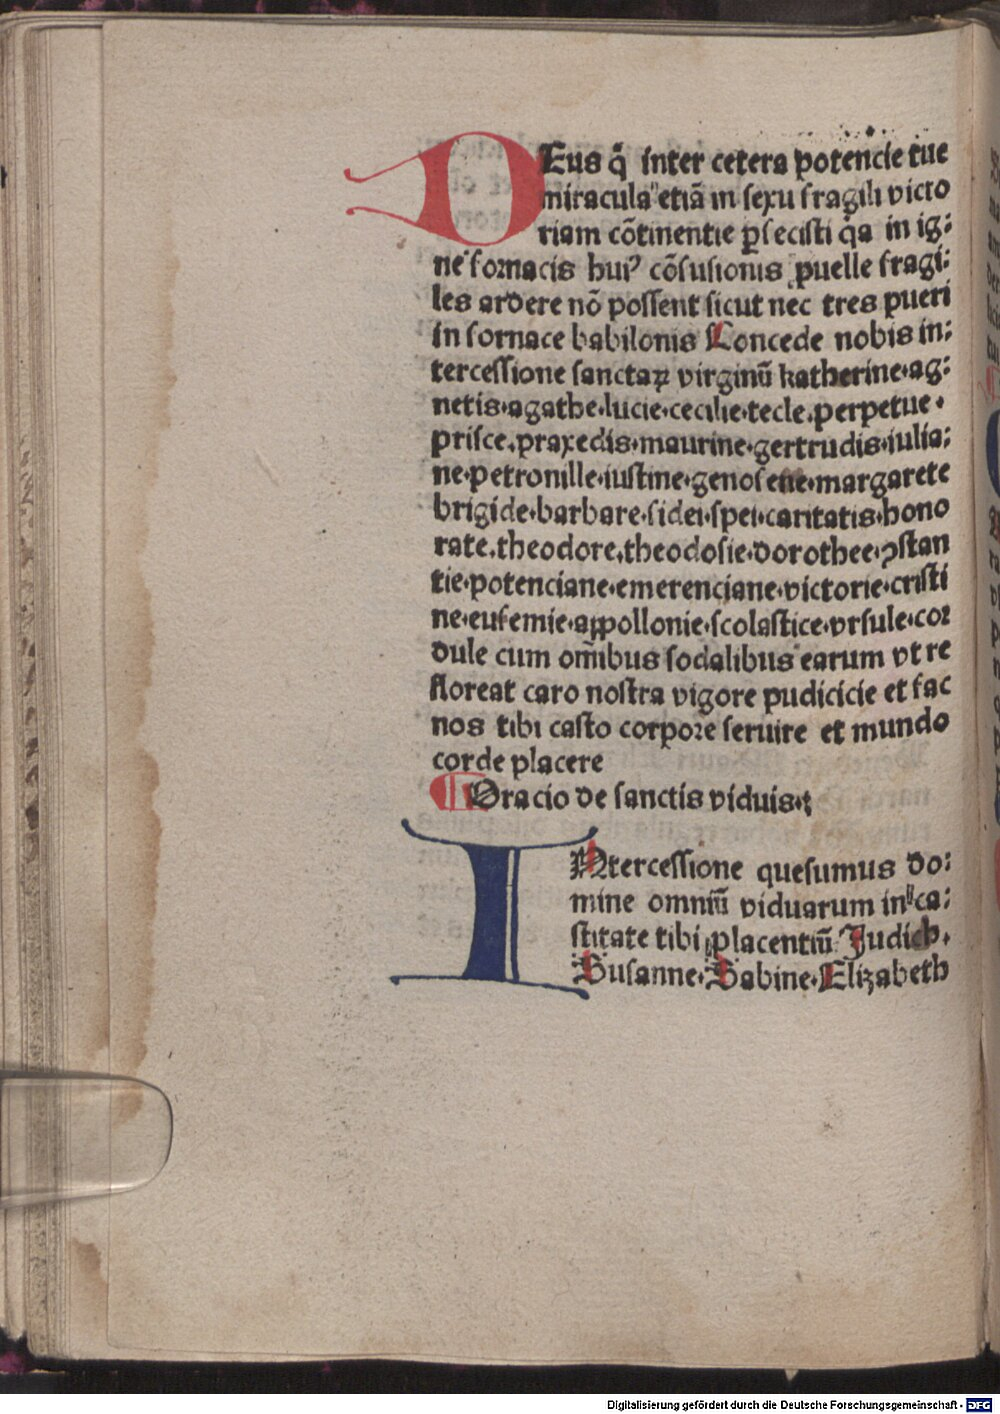 DEus q̄ inter cetera potencie tue
miracula etiā in sexu fragili victo
riam cōtinentie ꝑfecisti q̇a in ig⸗
ne fornacis huiꝰ cōfusionis puelle fragi⸗
les ardere nō possent sicut nec tres pueri
in fornace babilonis Concede nobis in⸗
tercessione sanctaꝝ virginū katherine·ag⸗
netis·agathe·lucie·cecilie·tecle.perpetue·
prisce.praxedis·maurine·gertrudis·iulia⸗
ne·petronille·iustine·genofefe·margarete
brigide·barbare·fidei·spei·caritatis·hono
rate.theodore.theodosie·dorothee·ꝯstan
tie·potenciane·emerenciane·victorie·cristi
ne·eufemie·appollonie·scolastice·vrsule·cor
dule cum om̄ibus sodalibus earum vt re
floreat caro nostra vigore pudicicie et fac
nos tibi casto corpore seruire et mundo
corde placere
¶ Oracio de sanctis viduis·
INtercessione quesumus do⸗
mine omniū viduarum in ca⸗
stitate tibi placentiū Judich·
Susanne·Sabine·Elizabeth
Digitalisierung gefördert durch die Deutsche Forschungsgemeinschaft - DFG